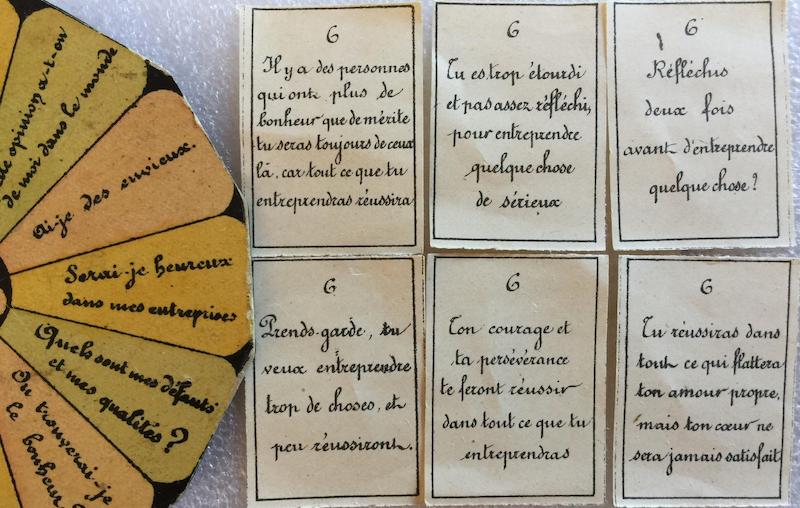 de opinion a-t-on
de moi dans le monde
Ai-je des envieux.
Serai-je heureux
dans mes entreprises
Quels sont mes défauts
et mes qualités ?
Où trouverai-je
le bonheur ?
6
Il y a des personnes
qui ont plus de
bonheur que de mérite
tu seras toujours de ceux
là, car tout ce que tu
entreprendras réussira
6
Tu es trop étourdi
et pas assez réfléchi,
pour entreprendre
quelque chose
de sérieux
6
Réfléchis
deux fois
avant d'entreprendre
quelque chose ?
6
Prends-garde, tu
veux entreprendre
trop de choses, et
peu réussiront.
6
Ton courage et
ta persévérance
te feront réussir
dans tout ce que tu
entreprendras
6
Tu réussiras dans
tout ce qui flattera
ton amour propre,
mais ton cœur ne
sera jamais satisfait